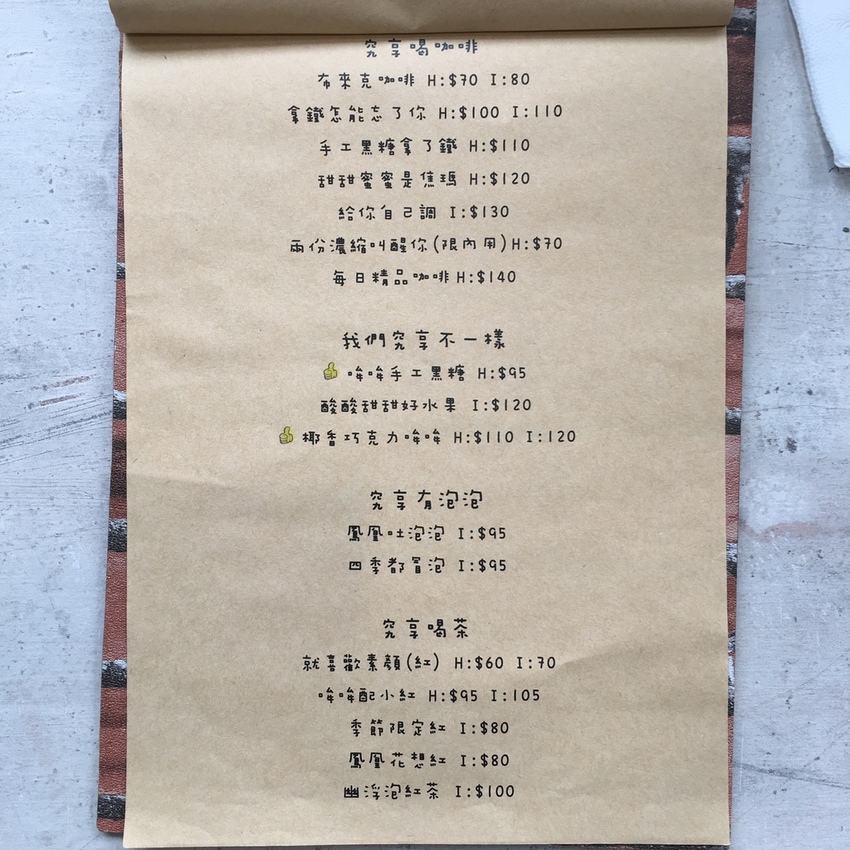 究享喝咖啡
布來克咖啡 H:$70 I:80
拿鐵怎能忘了你 H:$100 I:110
手工黑糖拿了鐵 H:$110
甜甜蜜蜜是焦瑪 H:$120
給你自己調 I:$130
兩份濃縮叫醒你(限內用)H:$70
每日精品咖啡H:$140
我們究享不一樣
哞哞手工黑糖 H:$95
酸酸甜甜好水果 I:$120
椰香巧克力哞哞 H:$110 I:120
究享有泡泡
鳳凰吐泡泡 I:$95
四季都冒泡 I:$95
究享喝茶
就喜歡素顏(紅) H:$60 I:70
哞哞配小紅 H:$95 I:105
季節限定紅 I:$80
鳳凰花想紅 I:$80
幽浮泡紅茶 I:$100